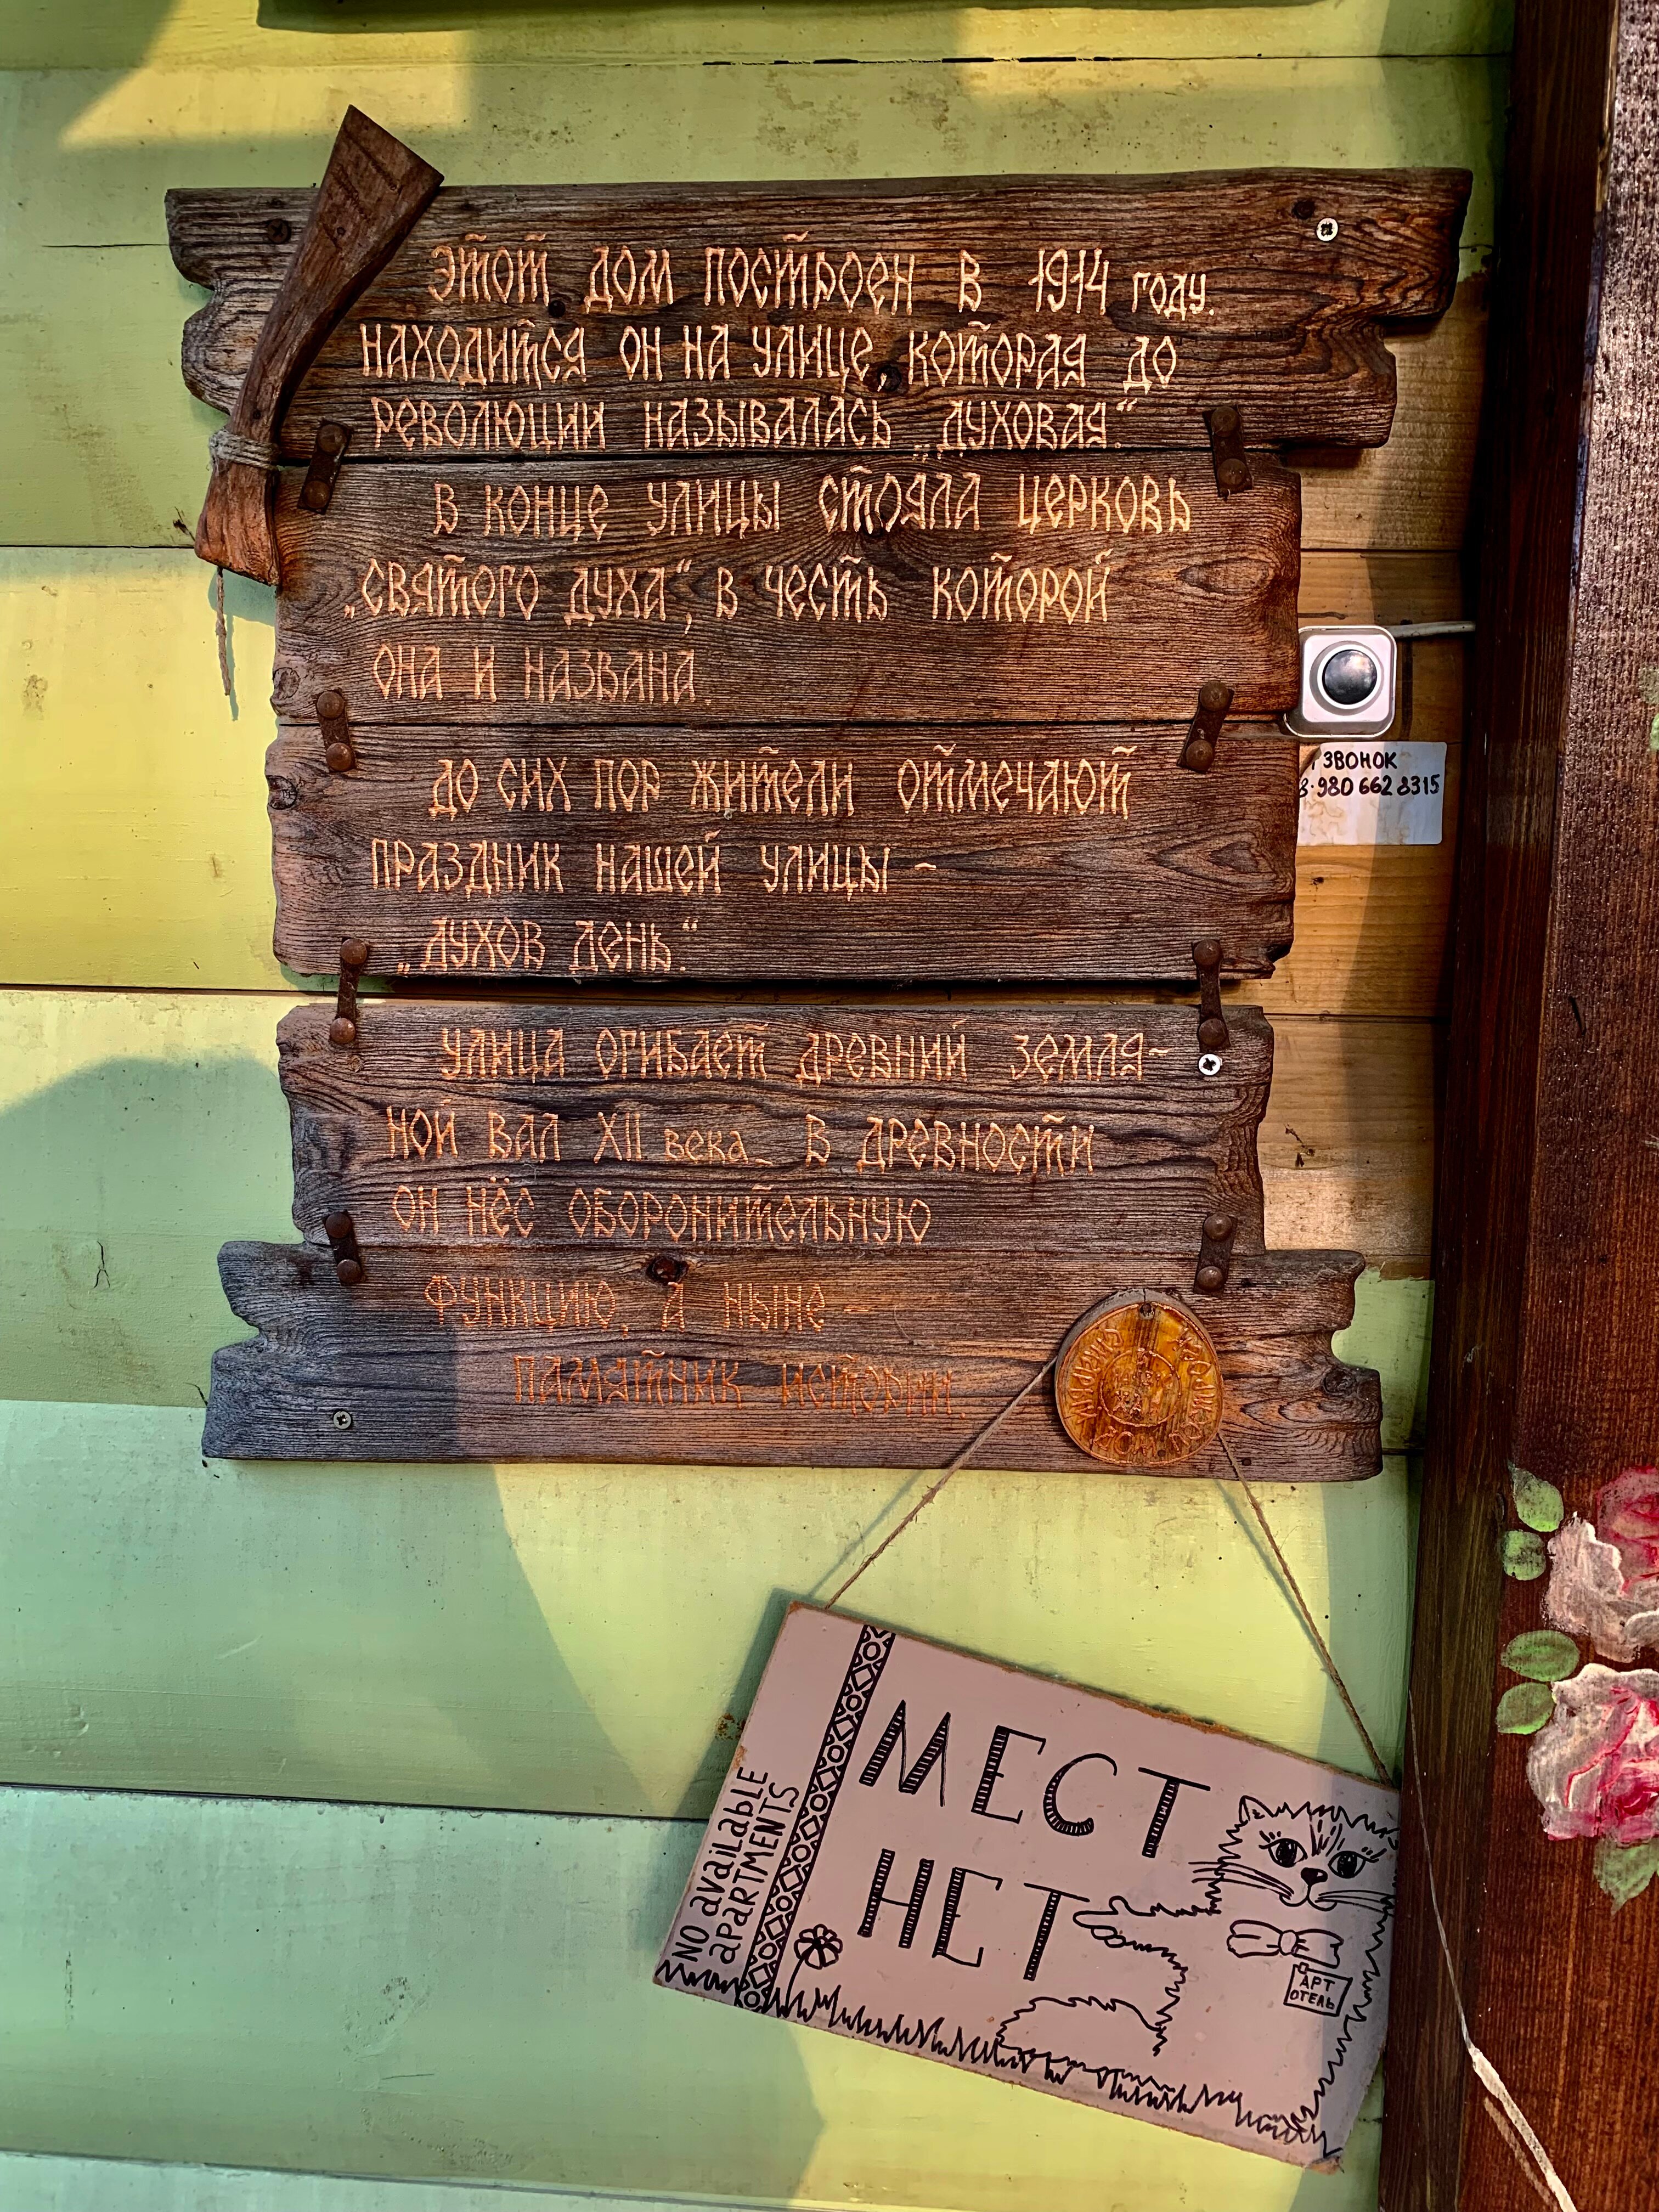 Этот дом построен в 1914 году.
Находится он на улице, которая до
революции называлась „Духовая“.
В конце улицы стояла церковь
„Святого Духа“, в честь которой
она и названа.
До сих пор жители отмечают
праздник нашей улицы –
„Духов день“.
Улица огибает древний земля-
ной вал XII века. В древности
он нёс оборонительную
функцию, а ныне –
памятник истории.
ЗВОНОК
8·980 662 8315
МЕСТ
НЕТ
NO available
apaRTMENTS
АРТ
ОТЕЛЬ